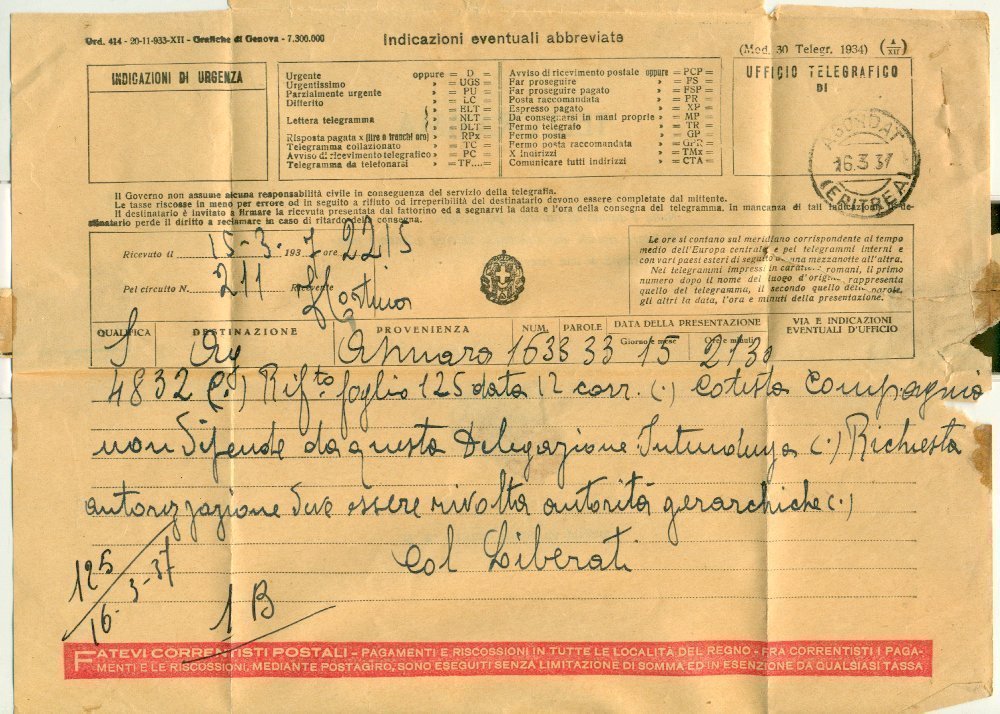 Ord. 414 - 20-11-933-XII - Grafiche di Genova - 7.300.000
Indicazioni eventuali abbreviate
(Mod. 30 Telegr. 1934) (A XII)
INDICAZIONI DI URGENZA
Urgente oppure = D =
Urgentissimo » = UGS =
Parzialmente urgente » = PU =
Differito » = LC =
Lettera telegramma
» = ELT =
» = NLT =
» = DLT =
Risposta pagata x (lire o franchi oro) » = RPx =
Telegramma collazionato » = TC =
Avviso di ricevimento telegrafico » = PC =
Telegramma da telefonarsi » = TF....=
Avviso di ricevimento postale oppure = PCP =
Far proseguire » = FS =
Far proseguire pagato » = FSP =
Posta raccomandata » = PR =
Espresso pagato » = XP =
Da consegnarsi in mani proprie » = MP =
Fermo telegrafo » = TR =
Fermo posta » = GP =
Fermo posta raccomandata » = GPR =
X indirizzi » = TMx =
Comunicare tutti indirizzi » = CTA =
UFFICIO TELEGRAFICO
DI
AGORDAT
16.3.37
(ERITREA)
Il Governo non assume alcuna responsabilità civile in conseguenza del servizio della telegrafia.
Le tasse riscosse in meno per errore od in seguito a rifiuto od irreperibilità del destinatario devono essere completate dal mittente.
Il destinatario è invitato a firmare la ricevuta presentata dal fattorino ed a segnarvi la data e l'ora della consegna del telegramma. In mancanza di tali indicazioni il de-
stinatario perde il diritto a reclamare in caso di ritardo della consegna.
Ricevuto il 15-3-1937 ore 2215
Pel circuito N. 211 Ricevente
Le ore si contano sul meridiano corrispondente al tempo
medio dell'Europa centrale e pei telegrammi interni e
con vari paesi esteri di seguito da una mezzanotte all'altra.
Nei telegrammi impressi in caratteri romani, il primo
numero dopo il nome del luogo d'origine rappresenta
quello del telegramma, il secondo quello delle parole,
gli altri la data, l'ora e minuti della presentazione.
QUALIFICA DESTINAZIONE PROVENIENZA NUM. PAROLE DATA DELLA PRESENTAZIONE VIA E INDICAZIONI
Giorno e mese Ore e minuti EVENTUALI D'UFFICIO
S Ag Asmara 1638 33 15 2130
4832 (.) Rif.to foglio 125 data 12 corr. (.) Cotesta Compagnia
non dipende da questa Delegazione Intendenza (.) Richiesta
autorizzazione deve essere rivolta autorità gerarchiche (.)
Col Liberati
125
16-3-37
1 B
FATEVI CORRENTISTI POSTALI - PAGAMENTI E RISCOSSIONI IN TUTTE LE LOCALITÀ DEL REGNO - FRA CORRENTISTI I PAGA-
MENTI E LE RISCOSSIONI, MEDIANTE POSTAGIRO, SONO ESEGUITI SENZA LIMITAZIONE DI SOMMA ED IN ESENZIONE DA QUALSIASI TASSA